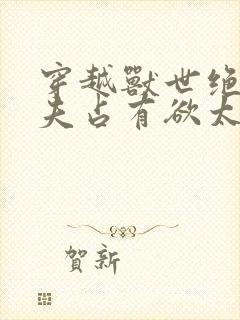 穿越獸世绝
夫占有欲太
賀新